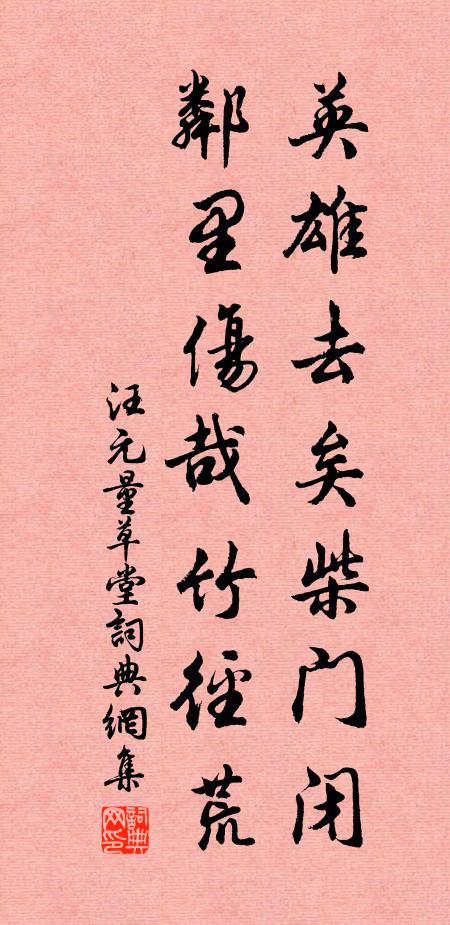 英雄去矣柴门闭
鄰里傷哉竹徑荒
汪元量草堂詞典網集
詞典網印